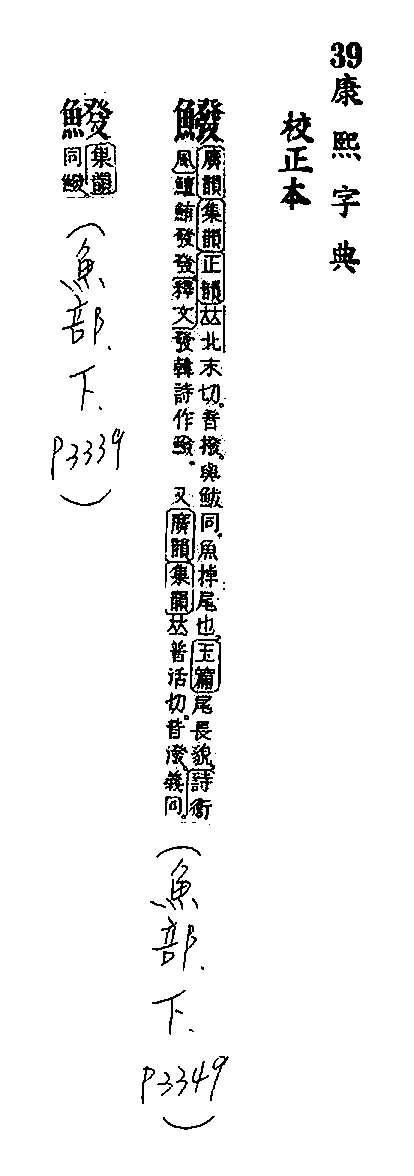 39康熙字典
校正本
鱍
廣韻集韻正韻𠀤北末切。音撥。與鮁同。魚掉尾也。玉篇尾長貌。詩衛
風鱣鮪發發釋文發韓詩作鱍。 又廣韻集韻𠀤普活切。音潑。義同。
(魚部.下.P3349)
集韻
同鱍
(魚部.下.P3339)